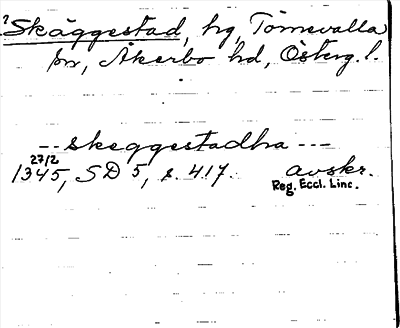 ?Skäggestad, hg, Törnevalla
sn, Åkerbo hd, Österg. l.
-- skeggestadha ---
27/2
1345, SD 5, s. 417. avskr.
Reg. Eccl. Linc.